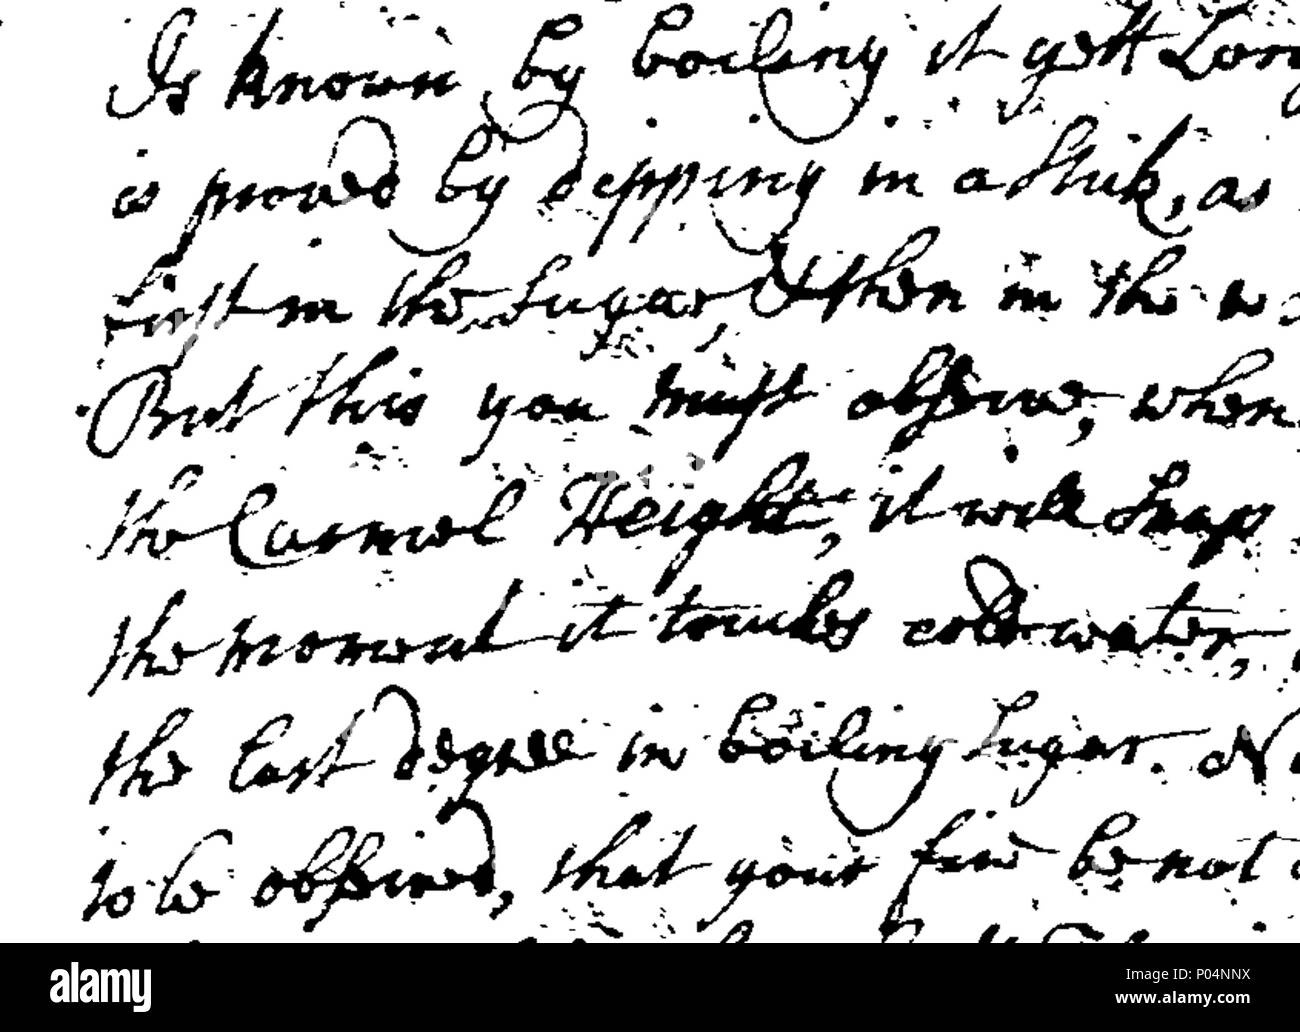 Is known by boiling it yett Long
is proved by dipping in a Stick, as
first in the Sugar, & then in the w
But this you must observe, when
the Carmel Height, it will Snap
the moment it touches cold water,
the Last degree in boiling Sugar. No
to be observed, that your fire be not
alamy
Image ID: P04NNX
www.alamy.com